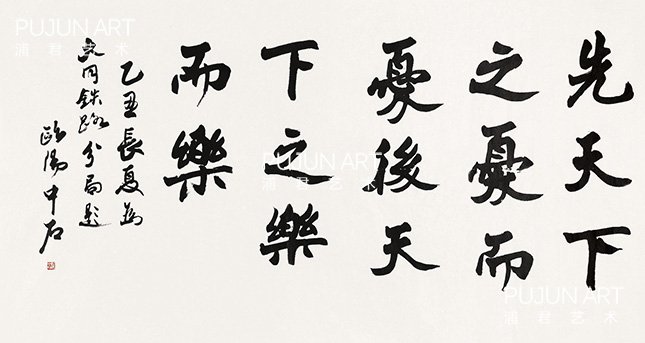 先天下
之憂而
憂後天
下之樂
而樂
乙丑長夏為
大同鉄路分局題
歐陽中石
PUJUN ART
浦君艺术
PUJUN ART
浦君艺术
PUJUN ART
浦君艺术